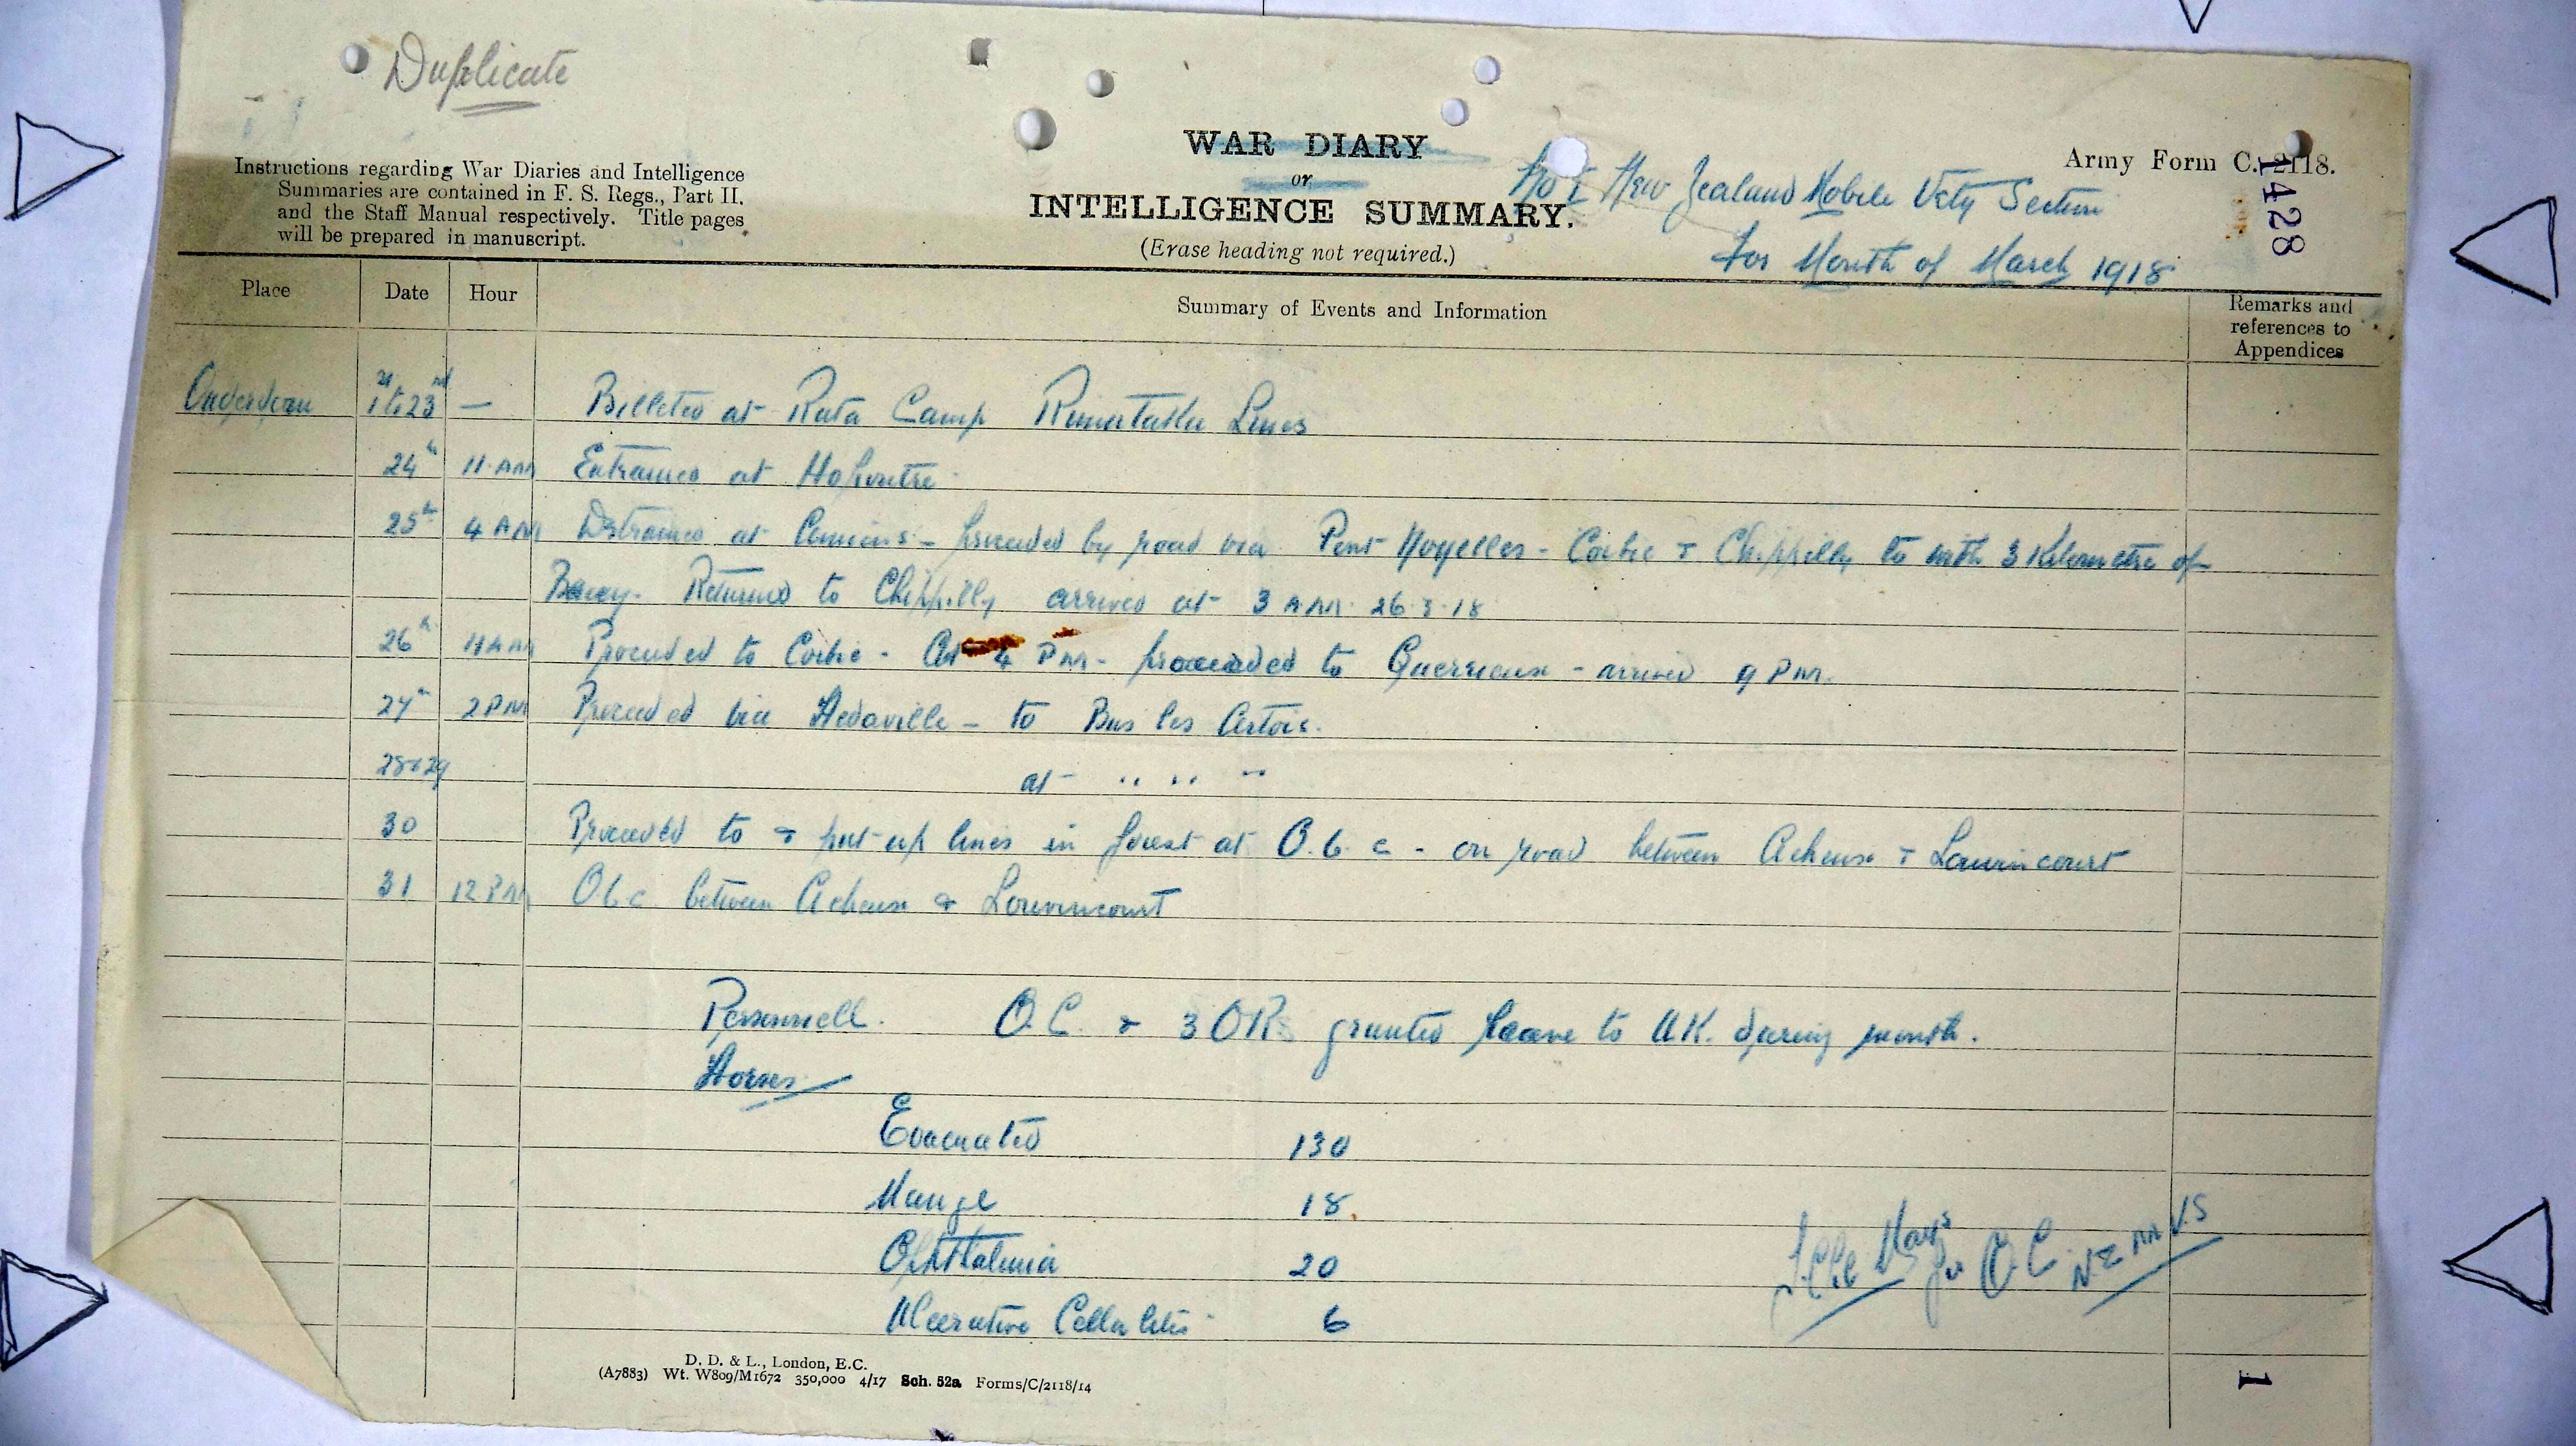 Duplicate
Instructions regarding War Diaries and Intelligence
Summaries are contained in F. S. Regs., Part II.
and the Staff Manual respectively. Title pages
will be prepared in manuscript.
WAR DIARY
or
INTELLIGENCE SUMMARY.
(Erase heading not required.)
Army Form C. 2118.
No I New Zealand Mobile Vety Section
for Month of March 1918
1428
Place Date Hour Summary of Events and Information Remarks and
references to
Appendices
1 to 23rd — Billeted at Rata Camp Lines
24th 11 AM Entrained at Hopoutre
25th 4 AM Detrained at Amiens - proceeded by road via Pont Noyelles - Corbie & Chippilly to with 3 Kilometre of
Bray. Returned to Chippilly arrived at 3 AM 26.3.18
26th 11 AM Proceeded to Corbie - At 4 PM - proceeded to Querrieux - arrived 9 PM.
27th 2 PM Proceeded via Hedaville - to Bus les Artois.
28 & 29 at " " "
30 Proceeded to & put up lines in forest at O.6.c - on road between Acheux & Louvincourt
31 12 PM O6c between Acheux & Louvencourt
Personnell. O.C. & 3 ORs granted leave to U.K. during month.
Horses
Evacuated 130
Mange 18
Ophthalmia 20
Ulcerative Cellulitis 6
for OC NZMVS
D. D. & L., London, E.C.
(A7883) Wt. W809/M1672 350,000 4/17 Sch. 52a Forms/C/2118/14
1